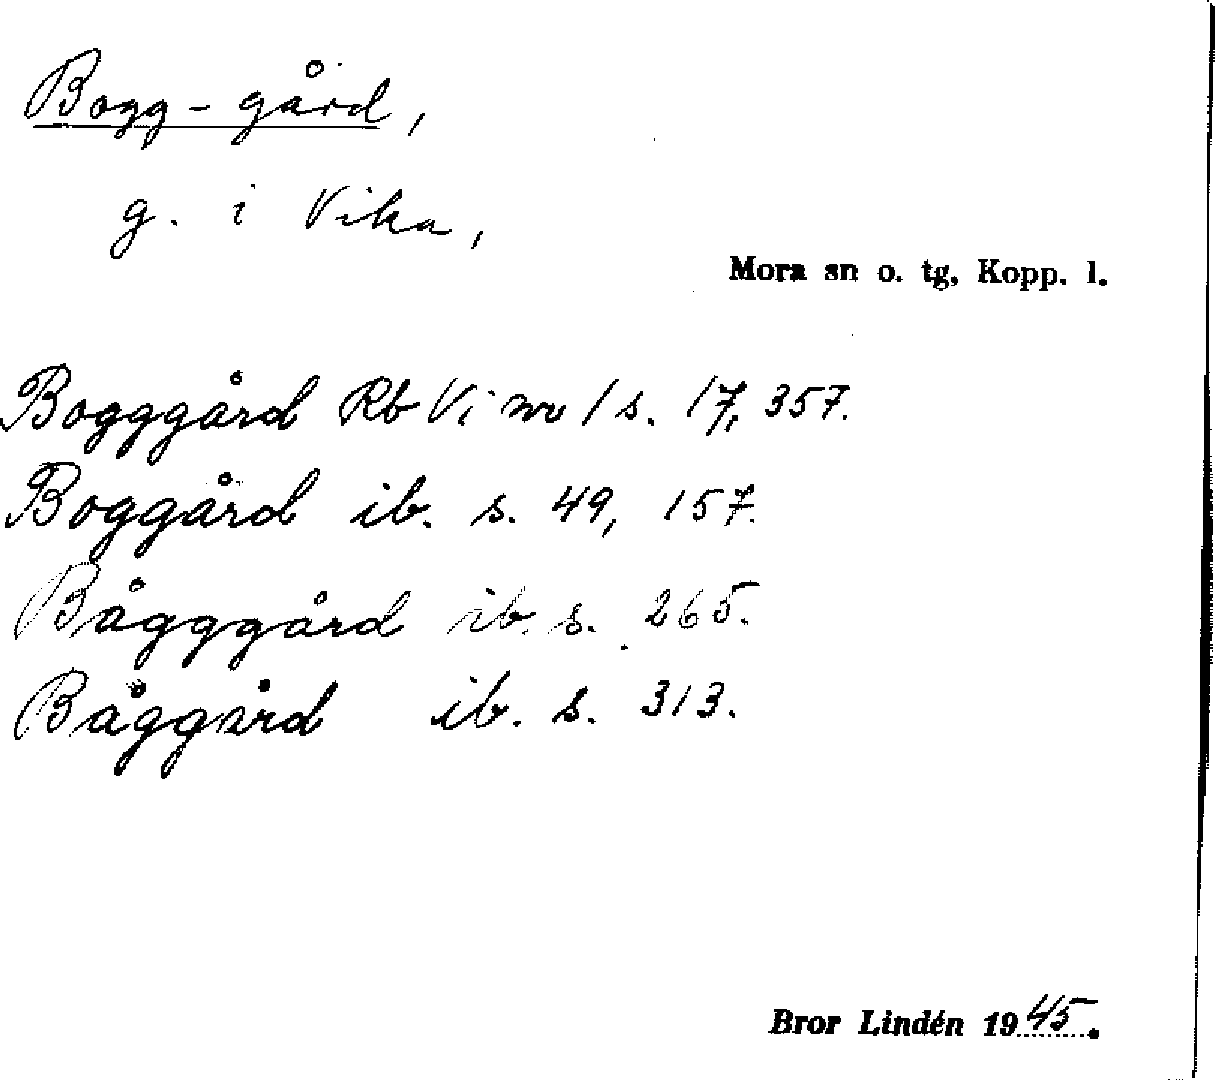 Bogg-gård,
g. i Vika,
Mora sn o. tg, Kopp. l.
Bogggård Rb Vi nr 1 s. 17, 357.
Boggård ib. s. 49, 157.
Båggård ib. s. 265.
Båggård ib. s. 313.
Bror Lindén 1945.